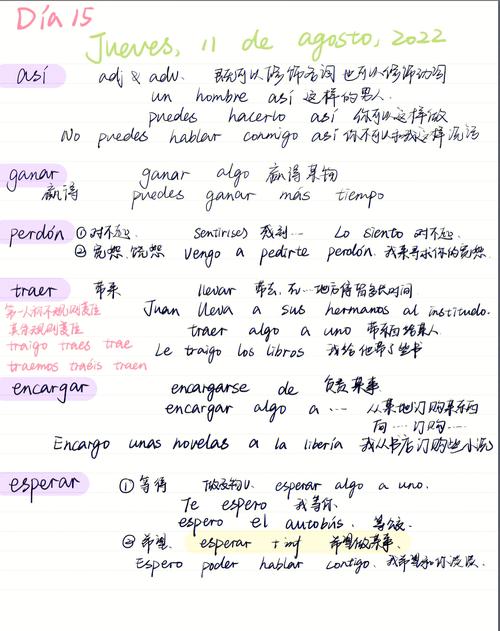 Día 15
Jueves, 11 de agosto, 2022
así adj & adv. 既可以修饰名词 也可以修饰动词
un hombre así 这样的男人.
puedes hacerlo así 你可以这样做
No puedes hablar conmigo así 你不可以和我这样说话
ganar ganar algo 赢得某物
赢得 puedes ganar más tiempo
perdón ①对不起. sentir(se) 感到... Lo siento 对不起.
②宽恕. 饶恕 vengo a pedirte perdón. 我来寻求你的宽恕.
traer 带来 llevar 带去. 在...地方待多长时间
第一人称不规则变位 Juan lleva a sus hermanos al institudo.
其余规则变位 traer algo a uno 带东西给某人
traigo traes trae Le traigo los libros 我给他带了些书
traemos traéis traen
encargar encargarse de 负责某事.
encargar algo a ... 从某地订购某东西
向... 订购...
Encargo unas novelas a la libería 我从书店订购些小说
esperar ①等待 esperar algo a uno.
Te espero 我等你.
espero el autobús. 等
②希望. esperar + inf 希望做某事.
Espero poder hablar contigo. 我希望和你谈谈.